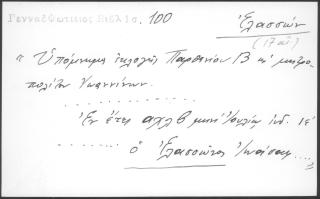 Γενναδ Φωτικος Βιβλιο. 100
Ἐλασσών
(17 αἰ)
« Ὑπόμνημα ἐκλογῆς Παρθενίου Β ὡς μητρο
πολίτου Ἰωαννίνων.
Ἐν ἔτει αχλβ μηνὶ Ἰουλίῳ ἰνδ. ιε
ὁ Ἐλασσῶνος Ἰωάσαφ ....»